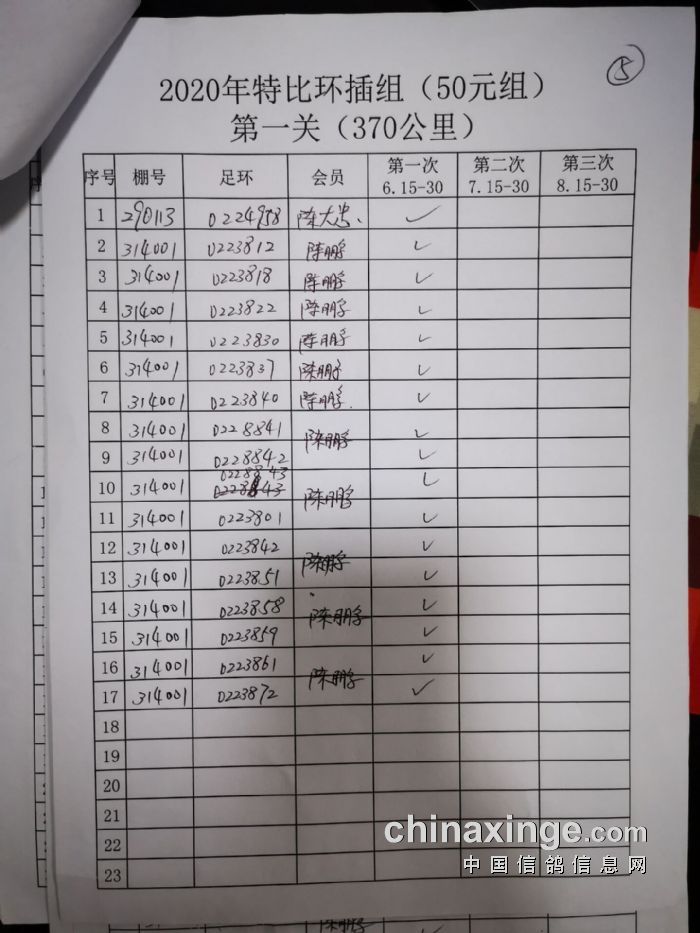 ⑤
2020年特比环插组（50元组）
第一关（370公里）
序号 棚号 足环 会员 第一次 6.15-30 第二次 7.15-30 第三次 8.15-30
1 290113 0224958 陈大忠 ✓
2 314001 0223812 陈鹏 ✓
3 314001 0223818 陈鹏 ✓
4 314001 0223822 陈鹏 ✓
5 314001 0223830 陈鹏 ✓
6 314001 0223837 陈鹏 ✓
7 314001 0223840 陈鹏 ✓
8 314001 0228841 陈鹏 ✓
9 314001 0228842 ✓
10 314001 0228843 陈鹏 ✓
11 314001 0223801 ✓
12 314001 0223842 陈鹏 ✓
13 314001 0223851 ✓
14 314001 0223858 陈鹏 ✓
15 314001 0223859 ✓
16 314001 0223861 陈鹏 ✓
17 314001 0223872 ✓
18
19
20
21
22
23
chinaxinge.com
中国信鸽信息网